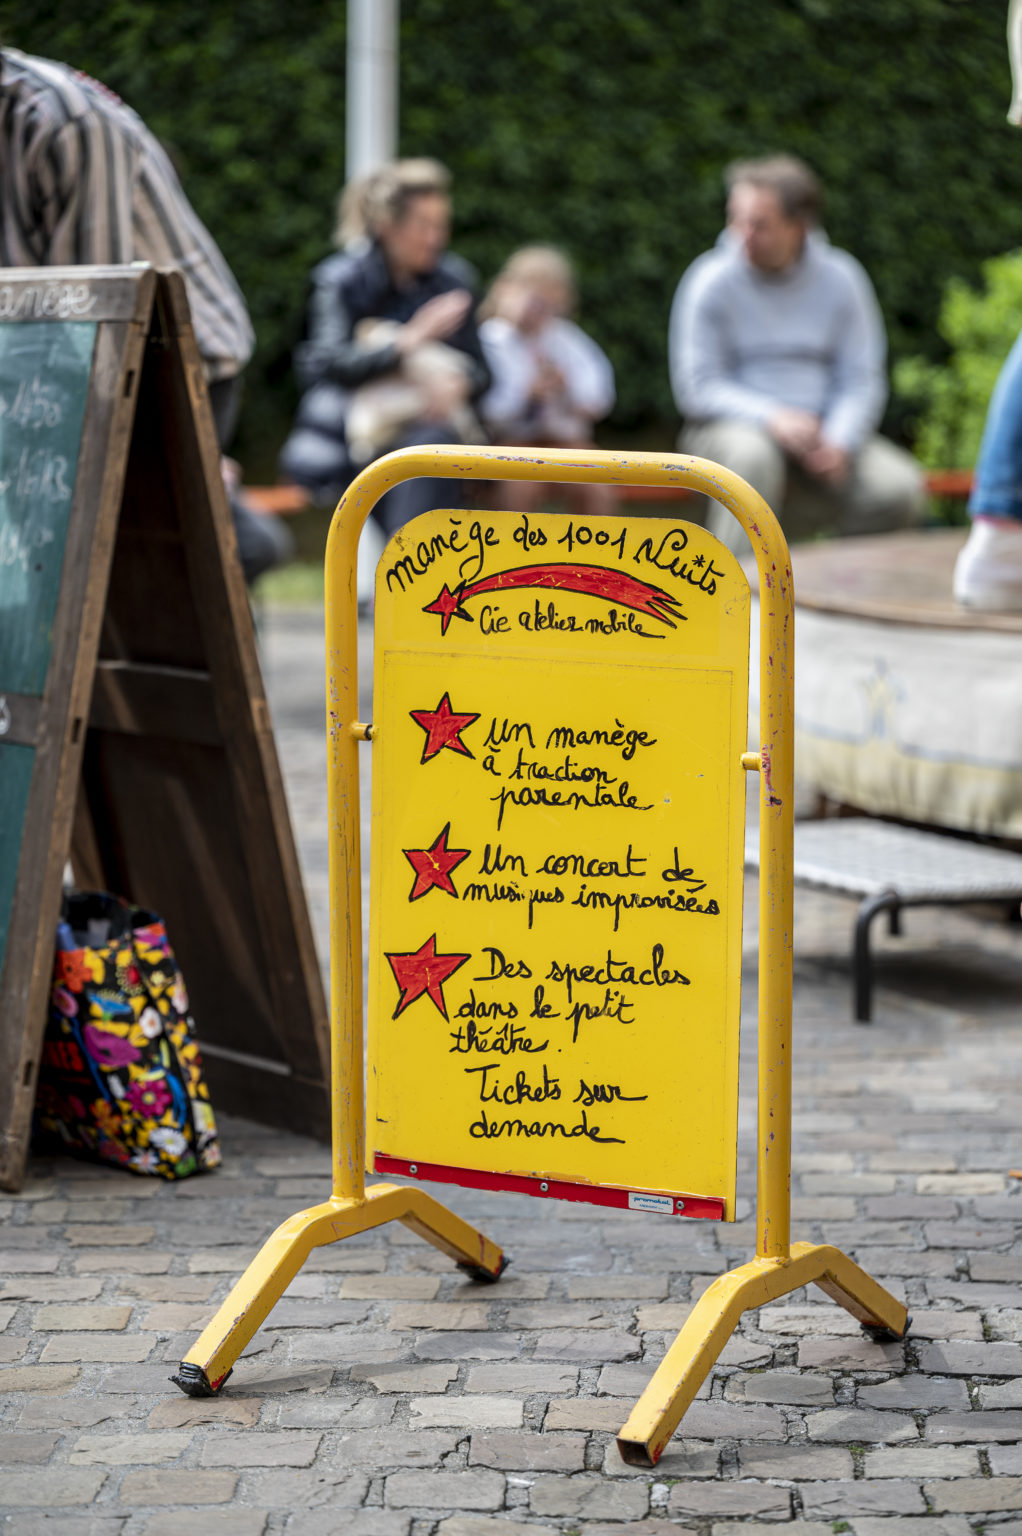 manège des 1001 Nuits
Cie atelier mobile
Un manège
à traction
parentale
Un concert de
musiques improvisées
Des spectacles
dans le petit
théâtre.
Tickets sur
demande
promokat
anège